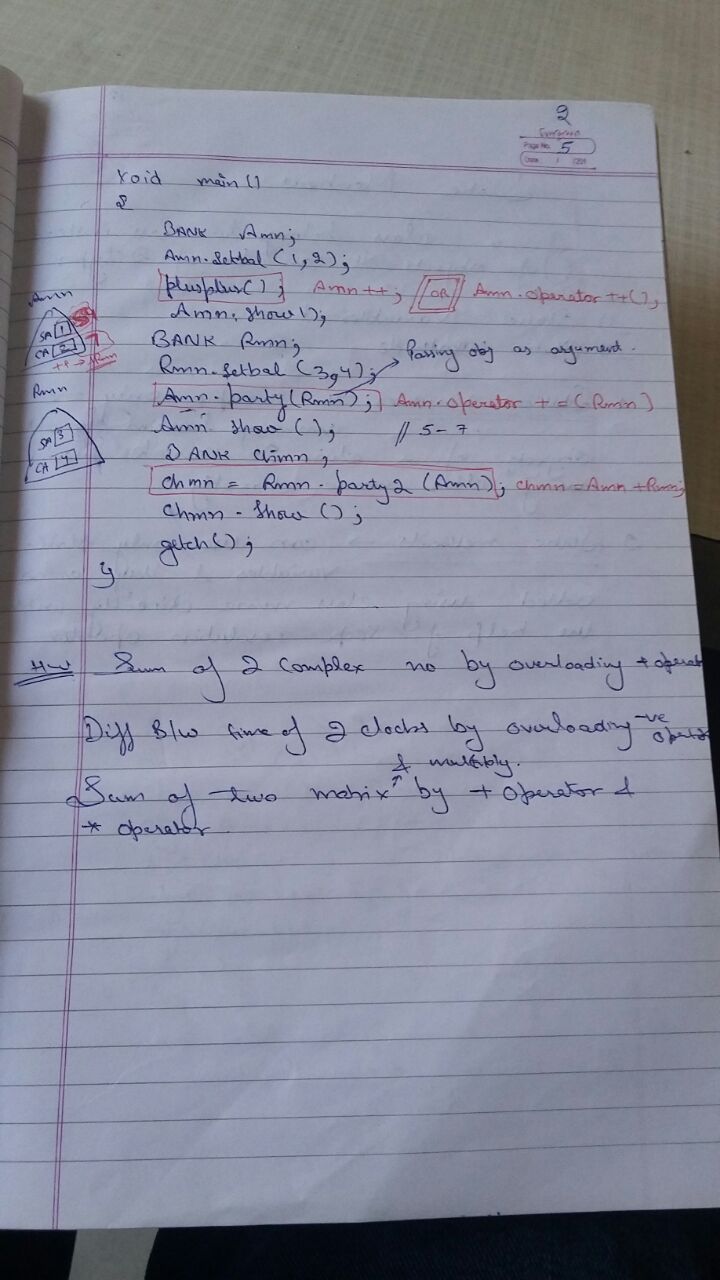 2
Page No. 5
Date / /201
void main()
{
BANK Amn;
Amn.Setbal (1,2);
plusplus(); Amn++; OR Amn.operator ++();
Amn. show();
BANK Rmn;
Passing obj as argument.
Rmn.Setbal (3,4);
Amn. party(Rmn); Amn.operator + = (Rmn)
Amn show (); // 5-7
BANK chmn;
chmn = Rmn. party2 (Amn); chmn = Amn + Rmn;
Chmn. show ();
getch();
}
Amn
SA 1
CA 2
++ → Rmn
Rmn
SA 3
CA 4
H-W Sum of 2 Complex no by overloading + operat
Diff B/w time of 2 clocks by overloading -ve operator
& multiply.
Sum of two matrix by + operator &
* operator